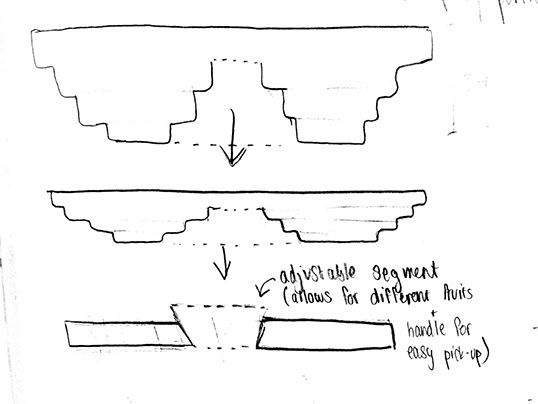 adjustable segment
(allows for different fruits
+
handle for
easy pick-up)